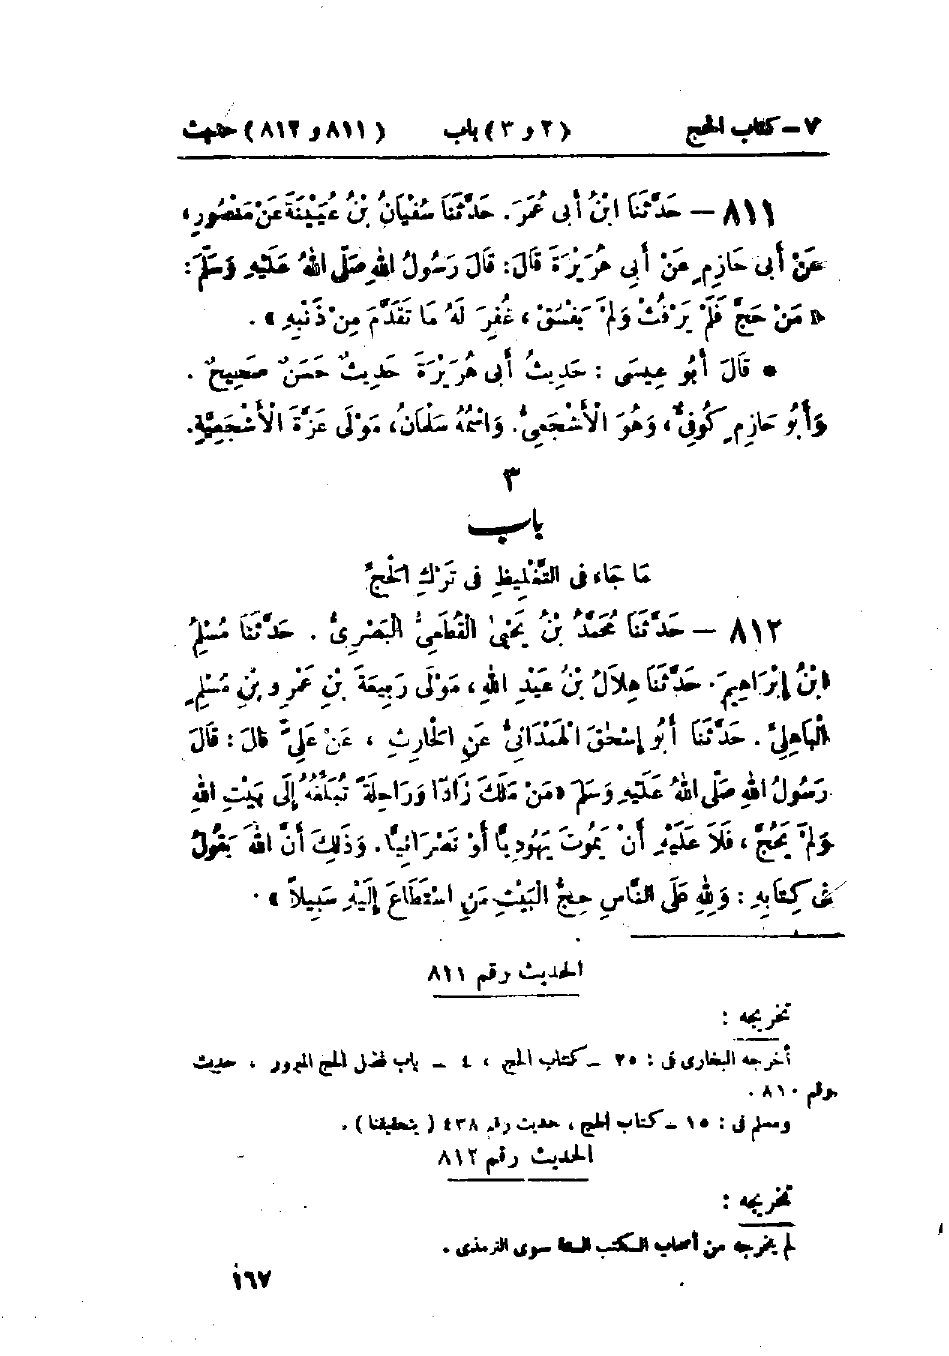 ٧ – كتاب الحج (٢ و ٣) باب (٨١١ و ٨١٢) حديث
٨١١ – حَدَّثَنَا ابْنُ أَبِى عُمَرَ. حَدَّثَنَا سُفْيَانُ بْنُ عُيَيْنَةَ عَنْ مَنْصُورٍ،
عَنْ أَبِى حَازِمٍ عَنْ أَبِى هُرَيْرَةَ قَالَ: قَالَ رَسُولُ اللهِ صَلَّى اللهُ عَلَيْهِ وَسَلَّمَ:
« مَنْ حَجَّ فَلَمْ يَرْفُثْ وَلَمْ يَفْسُقْ، غُفِرَ لَهُ مَا تَقَدَّمَ مِنْ ذَنْبِهِ ».
• قَالَ أَبُو عِيسَى : حَدِيثُ أَبِى هُرَيْرَةَ حَدِيثٌ حَسَنٌ صَحِيحٌ .
وَأَبُو حَازِمٍ كُوفِىٌّ، وَهُوَ الْأَشْجَعِىُّ. وَاسْمُهُ سَلْمَانُ، مَوْلَى عَزَّةَ الْأَشْجَعِيَّةِ.
٣
باب
مَا جَاءَ فى التَّغْلِيظِ فى تَرْكِ الْحَجِّ
٨١٢ – حَدَّثَنَا مُحَمَّدُ بْنُ يَحْيَى الْقُطَعِىُّ الْبَصْرِىُّ . حَدَّثَنَا مُسْلِمُ
ابْنُ إِبْرَاهِيمَ. حَدَّثَنَا هِلَالُ بْنُ عَبْدِ اللهِ، مَوْلَى رَبِيعَةَ بْنِ عَمْرِو بْنِ مُسْلِمٍ
الْبَاهِلِىِّ . حَدَّثَنَا أَبُو إِسْحٰقَ الْهَمْدَانِىُّ عَنِ الْحَارِثِ ، عَنْ عَلِىٍّ قَالَ : قَالَ
رَسُولُ اللهِ صَلَّى اللهُ عَلَيْهِ وَسَلَّمَ «مَنْ مَلَكَ زَادًا وَرَاحِلَةً تُبَلِّغُهُ إِلَى بَيْتِ اللهِ
وَلَمْ يَحُجَّ، فَلَا عَلَيْهِ أَنْ يَمُوتَ يَهُودِيًّا أَوْ نَصْرَانِيًّا. وَذَلِكَ أَنَّ اللهَ يَقُولُ
فى كِتَابِهِ : وَلِلهِ عَلَى النَّاسِ حِجُّ الْبَيْتِ مَنِ اسْتَطَاعَ إِلَيْهِ سَبِيلاً » .
الحديث رقم ٨١١
تخريجه :
أخرجه البخارى فى : ٢٥ – كتاب الحج ، ٤ – باب فضل الحج المبرور ، حديث
رقم ٨١٠ .
ومسلم فى : ١٥ – كتاب الحج ، حديث رقم ٤٣٨ ( بتحقيقنا ) .
الحديث رقم ٨١٢
تخريجه :
لم يخرجه من أصحاب الكتب الستة سوى الترمذى .
١٦٧